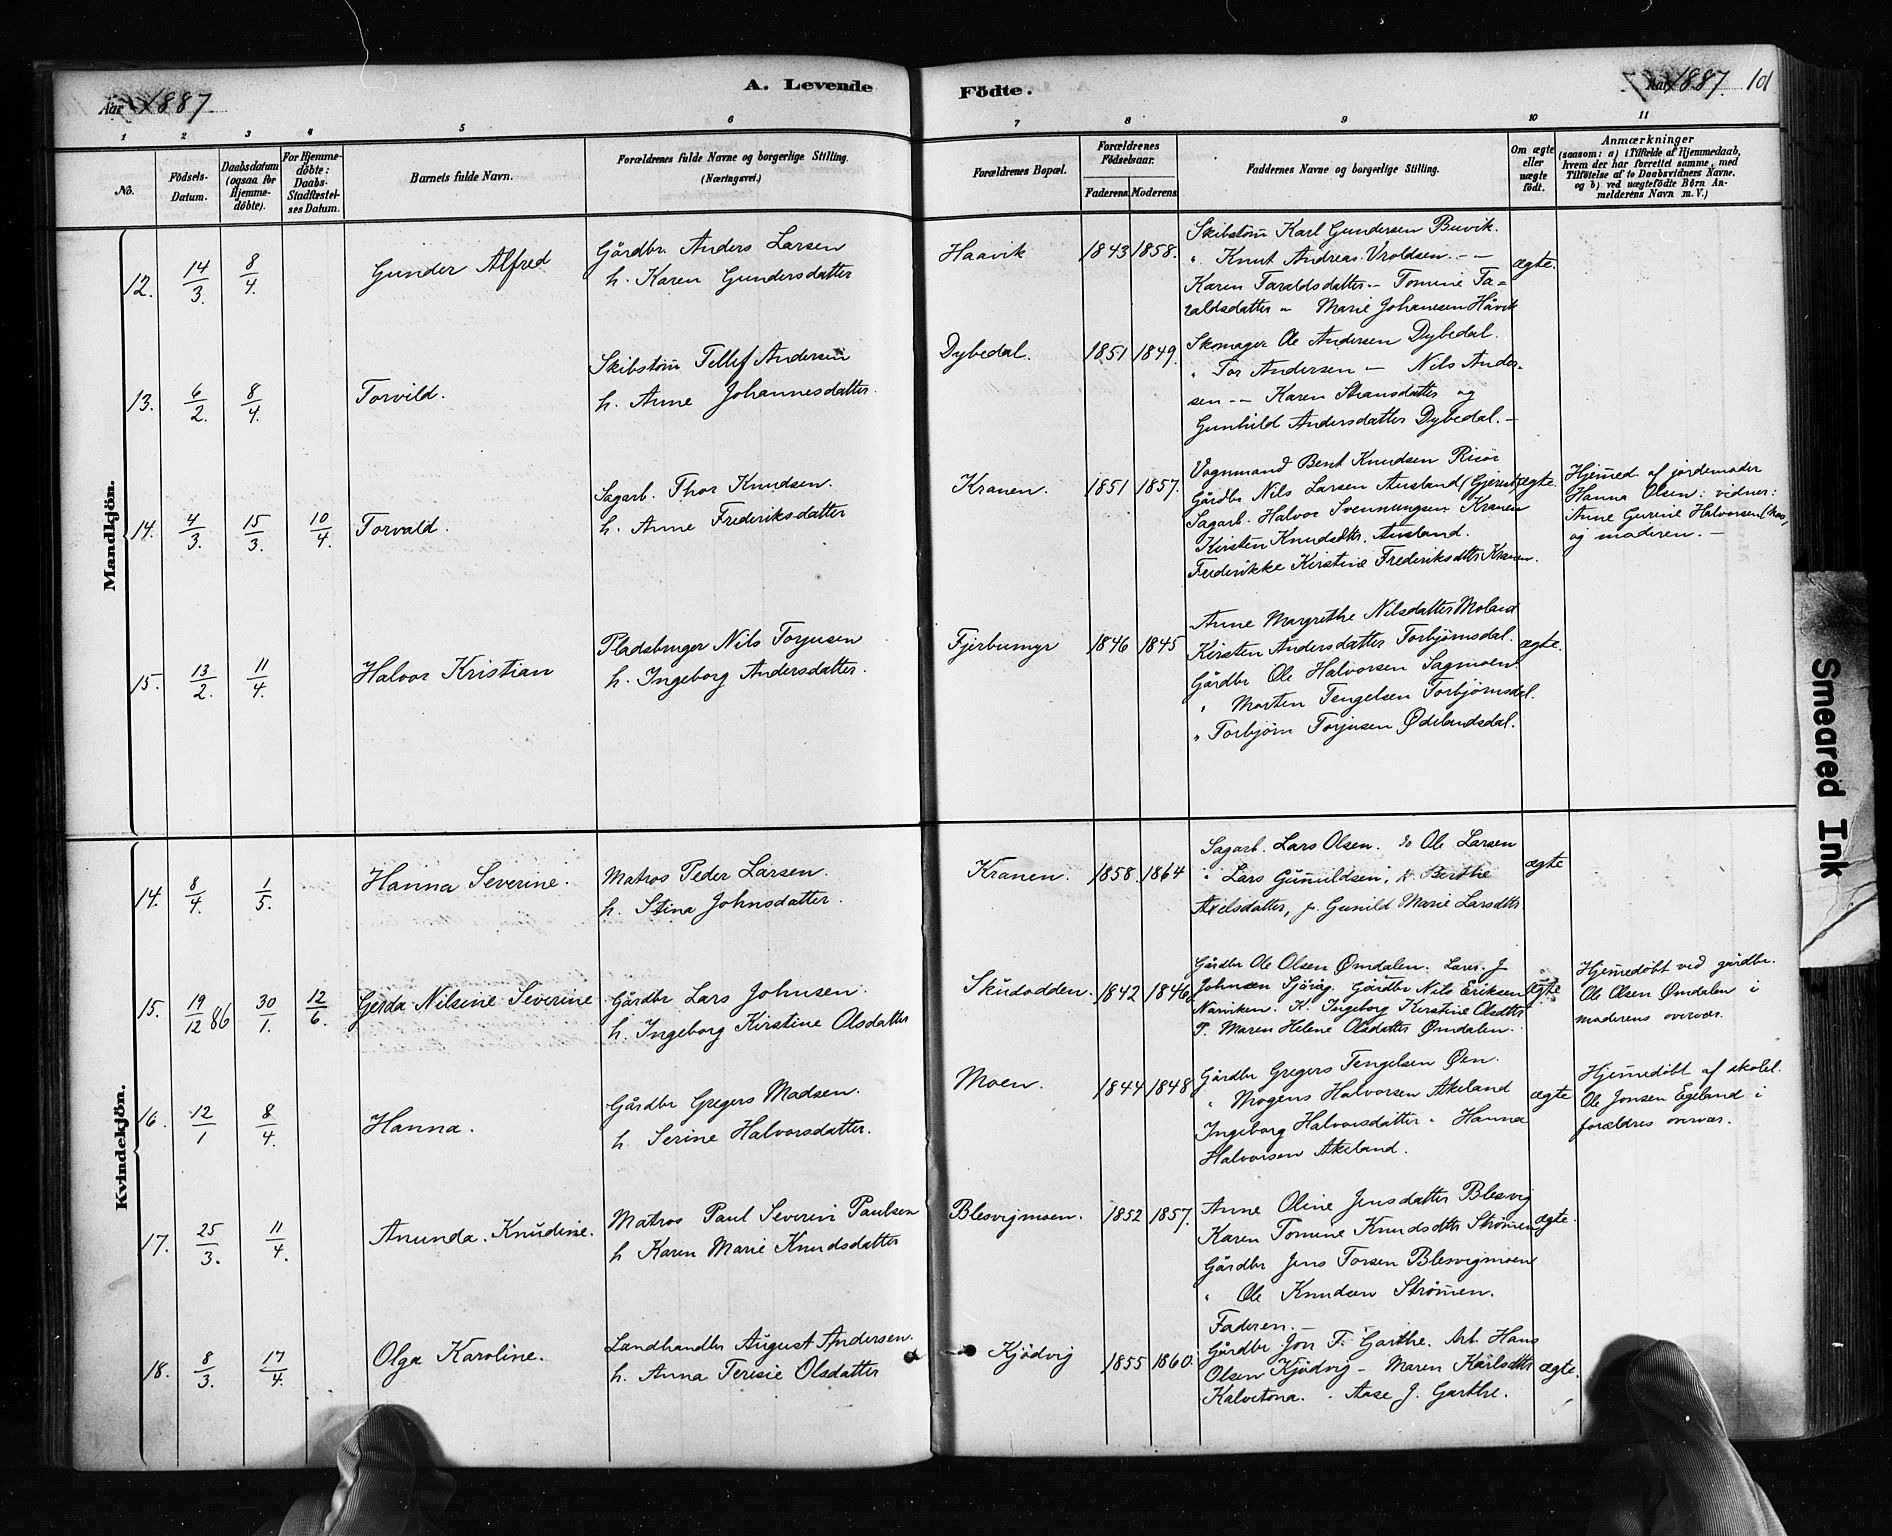 Aar 1887
A. Levende
Födte.
Aar 1887. 101
1 2 3 4 5 6 7 8 9 10 11
No.
Födsels-Datum.
Daabsdatum (ogsaa for Hjemme-döbte).
For Hjemme-döbte: Daabs-Stadfæstel-ses Datum.
Barnets fulde Navn.
Forældrenes fulde Navne og borgerlige Stilling.
(Næringsvei.)
Forældrenes Bopæl.
Forældrenes Födselsaar.
Faderens. Moderens.
Faddernes Navne og borgerlige Stilling.
Om ægte eller uægte födt.
Anmærkninger
(saasom: a) i Tilfælde af Hjemmedaab, hvem der har forrettet samme, med Tilföielse af to Daabsvidners Navne, og b) ved uægtefödte Börn An-melderens Navn m. V.)
Mandkjön.
12. 14/3. 8/4. Gunder Alfred
Gårdbr. Anders Larsen
h. Karen Gundersdatter
Haavik 1843 1858.
Skibstøm Karl Gundersen Buvik.
" Knut Andreas Vroldsen. - -
Karen Taraldsdatter - Tomine Ta=
raldsdatter " Marie Johansen Håvik
ægte.
13. 6/2. 8/4. Torvild.
Skibstøm Tellef Andersen
h. Anne Johannesdatter.
Dybedal. 1851 1849.
Skomager Ole Andersen Dybedal.
" Tor Andersen - Nils Ander-
sen - - Karen Stransdatter og
Gunhild Andersdatter Dybedal. -
14. 4/3. 15/3. 10/4. Torvald.
Sagarb. Thor Knudsen.
h. Anne Frederiksdatter
Kranen. 1851 1857.
Vognmand Bent Knudsen Risör
Gårdbr Nils Larsen Ausland (Gjerst.)
Sagarb. Halvor Svennungsen Kranen
Kirsten Knudsdtr. Ausland.
Frederikke Kirstine Frederiksdtr Kranen.
ægte.
Hjemed. af jordemoder
Hanna Olsen: vidner:
Anne Gurine Halvorsen
og moderen. -
15. 13/2. 11/4. Halvor Kristian
Pladsbruger Nils Torjusen
h. Ingeborg Andersdatter.
Fjerbumyr 1846 1845
Anne Margrethe Nilsdatter Moland
Kirsten Andersdatter Torbjørnsdal.
Gårdbr Ole Halvorsen Sagmoen.
" Morten Tengelsen Torbjørnsdal.
" Torbjørn Torjusen Ødelandsdal.
ægte.
Kvindekjön.
14. 8/4. 1/5. Hanna Severine.
Matros Peder Larsen.
h. Stina Johnsdatter.
Kranen. 1858. 1864
Sagarb. Lars Olsen. do Ole Larsen
" Lars Gunuldsen, p. Berthe
Axelsdatter, p. Gunild Marie Larsdtr
ægte
15. 19/12 86 30/1. 12/6. Gerda Nilsine Severine
Gårdbr Lars Johnsen.
h. Ingeborg Kirstine Olsdatter
Skudodden. 1842 1846
Gårdbr Ole Olsen Ømdalen. Lars J
Johnsen Sjövåg. Gårdbr Nils Eriksen
Narviken. K. Ingeborg Kirstine Olsdtr
P. Maren Helene Olsdatter Ømdalen.
ægte
Hjemedöbt ved gårdbr.
Ole Olsen Ømdalen i
moderens overvær.
16. 12/1 8/4. Hanna.
Gårdbr Gregers Madsen.
h. Serine Halvorsdatter.
Moen. 1844 1848
Gårdbr Gregers Tengelsen Øen.
" Mogens Halvorsen Akeland
Ingeborg Halvorsdatter " Hanna
Halvorsen Akeland.
ægte
Hjemedöbt af skolel.
Ole Jonsen Egeland i
forældres overvær.
17. 25/3. 11/4. Anunda. Knudine.
Matros Paul Severin Paulsen
h Karen Marie Knudsdatter
Blesvigmoen. 1852 1857.
Anne Oline Jensdatter Blesvig
Karen Tomine Knudsdtr Strømen
Gårdbr Jens Torsen Blesvigmoen
" Ole Knudsen Strømen.
Faderen. -
ægte.
18. 8/3. 17/4. Olga Karoline.
Landhandler August Andersen.
h. Anna Teresie Olsdatter
Kjödvig 1855 1860.
Gårdbr Jon T. Garthe. Arb. Hans
Olsen Kjödvig - Maren Karlsdtr
Kalvetona. - Aase J. Garthe.
ægte.
Smeared Ink